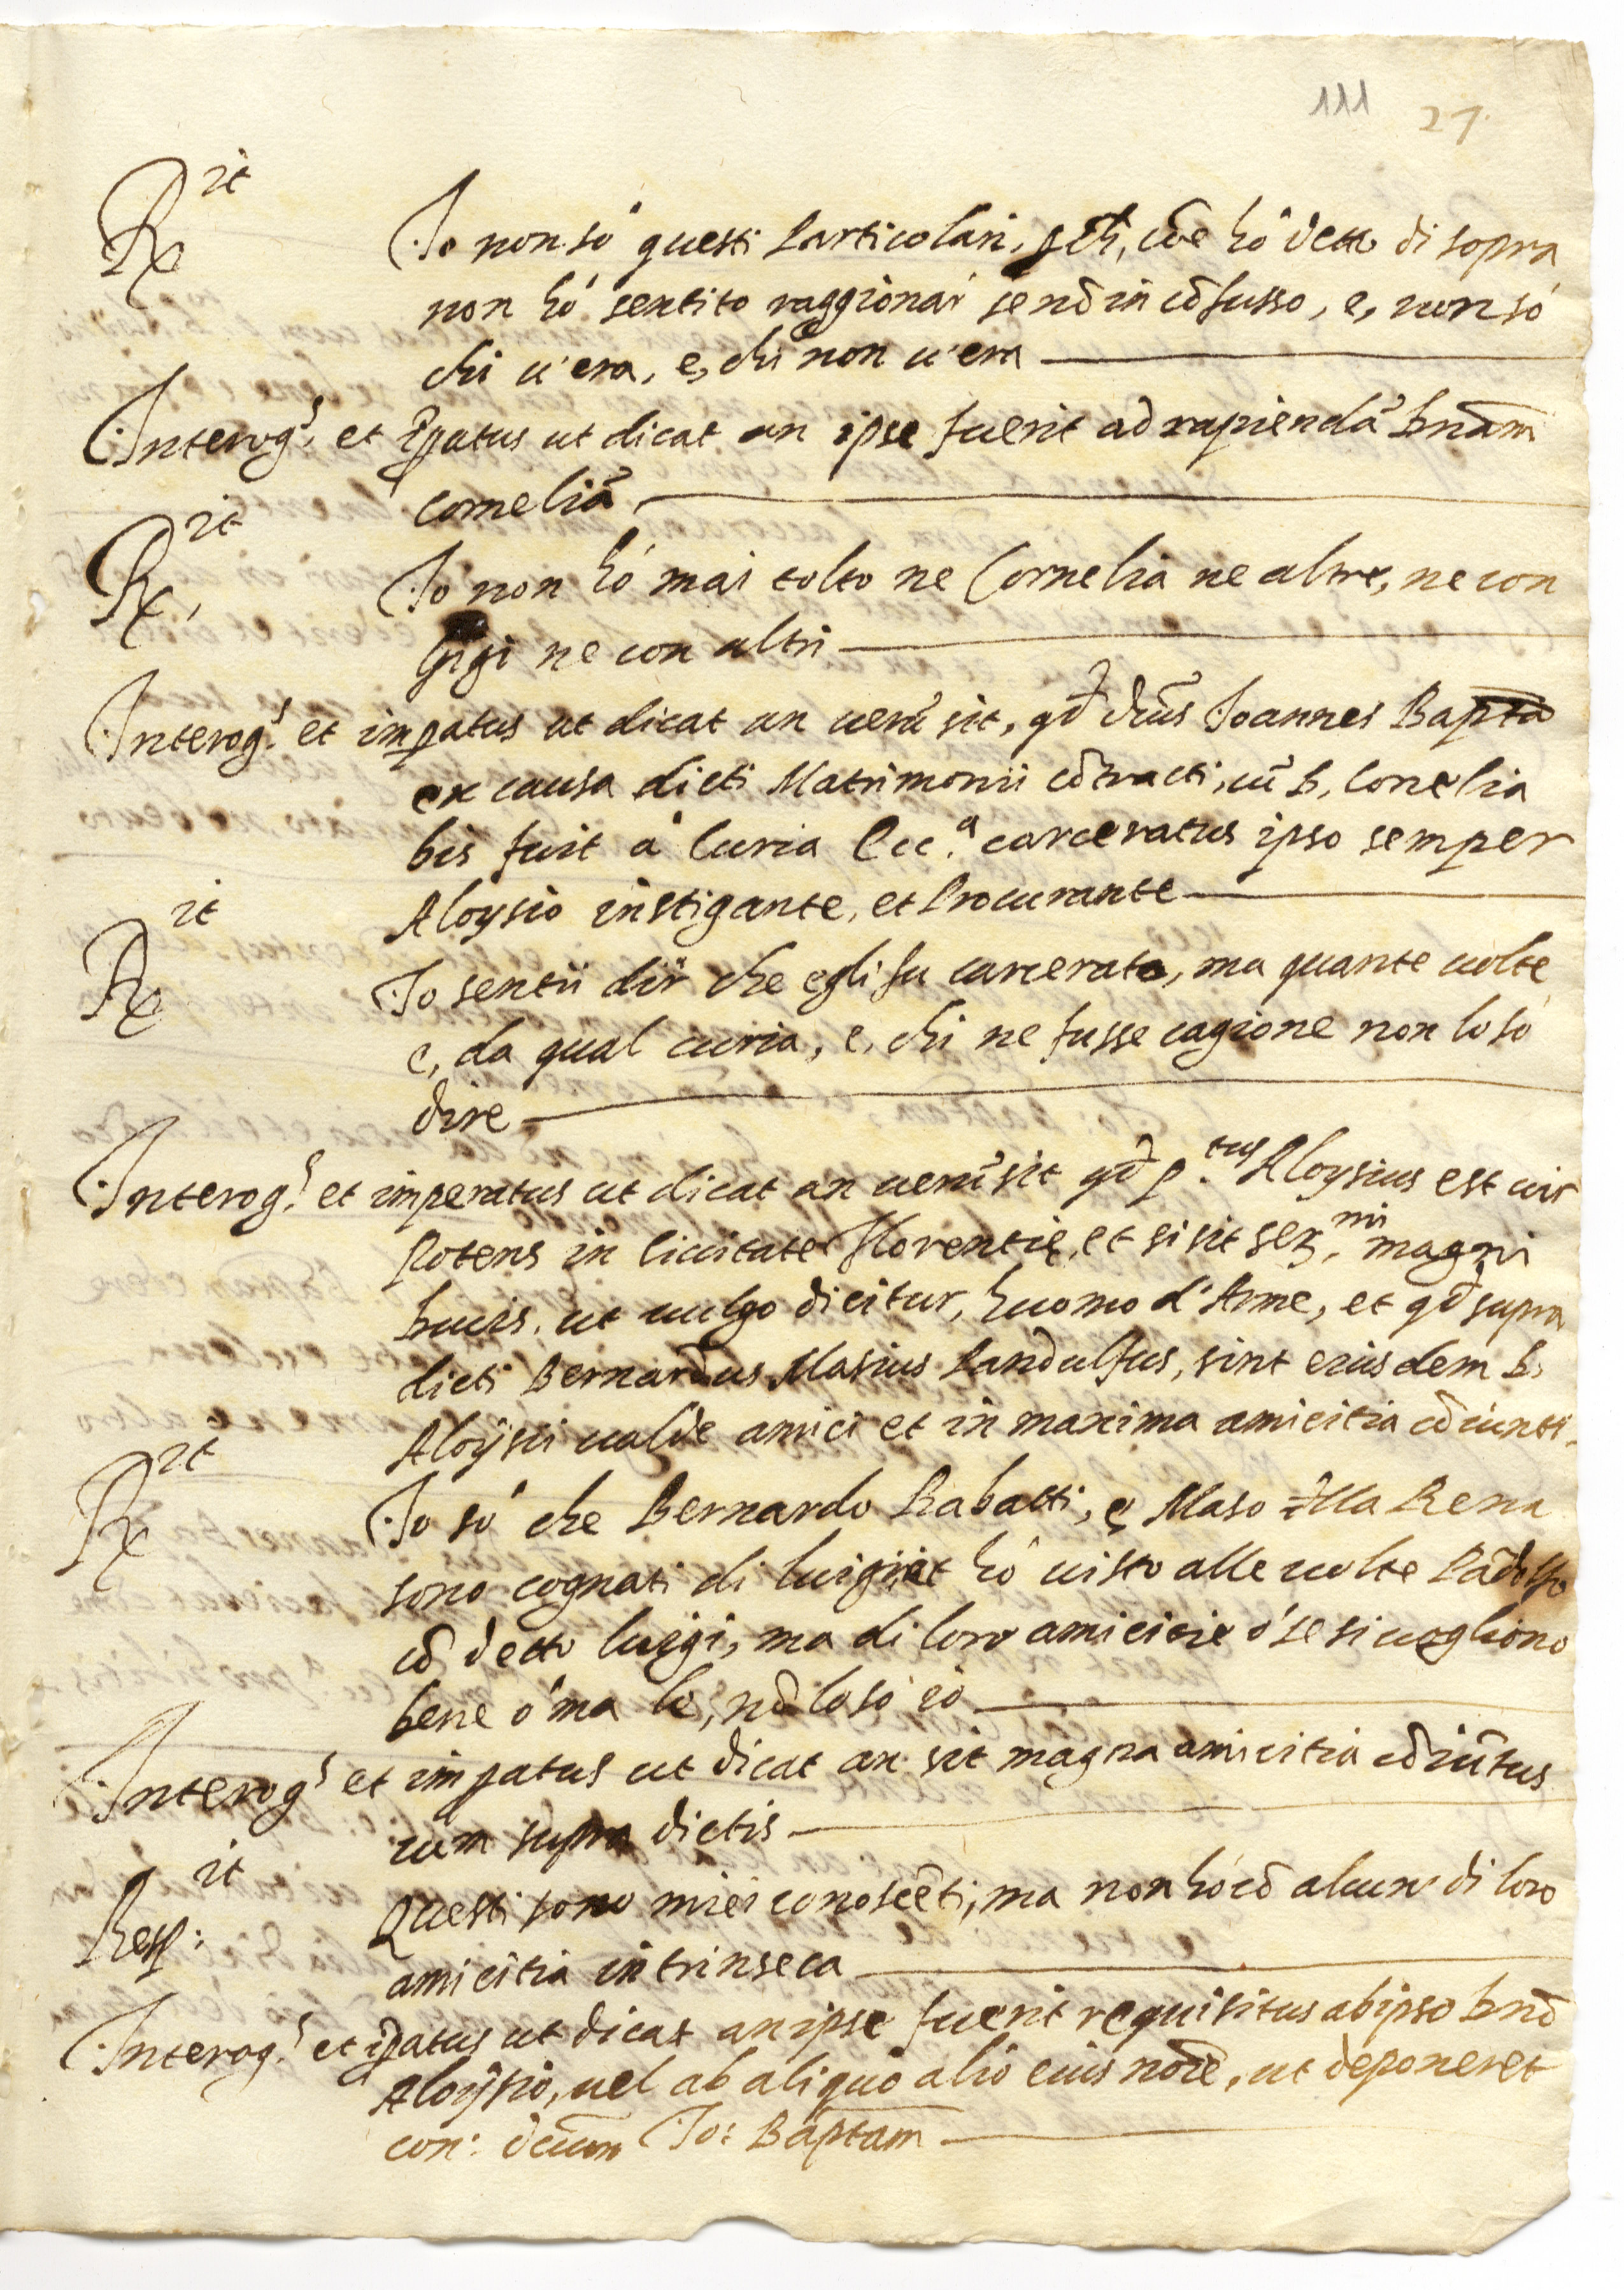 111 27.
R.it Io non so questi particolari, ꝑch, cōe hò detto di sopra
non hò sentito raggionar se nō in cōfusso, e, non sò
chi u'era, e, chi non u'era
Interog.s et īꝑatus ut dicat an ipse fuerit ad rapiendā bnām
corneliā
R.it Io non hò mai tolto ne Cornelia ne altre, ne con
Gigi ne con altri
Interog.s et imꝑatus ut dicat an uerū sit, qd̄ dīus Joannes Bapta
ex causa dicti Matrimonii cōtracti, cū b, Cornelia
bis fuit à Curia Ecc.a carceratus ipso semper
Aloysio instigante, et procurante
R.it Io sentii dir che egli fu carcerato, ma quante uolte
e, da qual curia, e, chi ne fusse cagione non lo so
dire
Interog.s et imperatus ut dicat an uerū sit qd̄ p.tus Aloysius est uir
potens in ciuitate Florentie, et si sit ser.mi magni
Ducis, ut uulgo dicitur, huomo d'Arme, et qd̄ supra
dicti Bernardus Masius Pandulfus, sint eiusdem b,
Aloysii ualde amici et in maxima amicitia cōiuncti
R.it Io sò che Bernardo Rabatti, e Maso d̄lla Rena
sono cognati di luigi, et hò uisto alle uolte Pādolfo
cō detto luigi, ma di loro amicitie ò se si uogliono
bene ò male, nō lo sò io
Interog.s et imꝑatus ut dicat an sit magna amicitia cōiūtus
cum supra dictis
Resp:it Questi sono miei conoscēti, ma non hò cō alcun' di loro
amicitia intrinseca
Interog.s et īꝑatus ut dicat an ipse fuerit requisitus ab ipso bnō
Aloysio, uel ab aliquo alio eius noīe, ut deponeret
con: dcūm Jo: Baptam